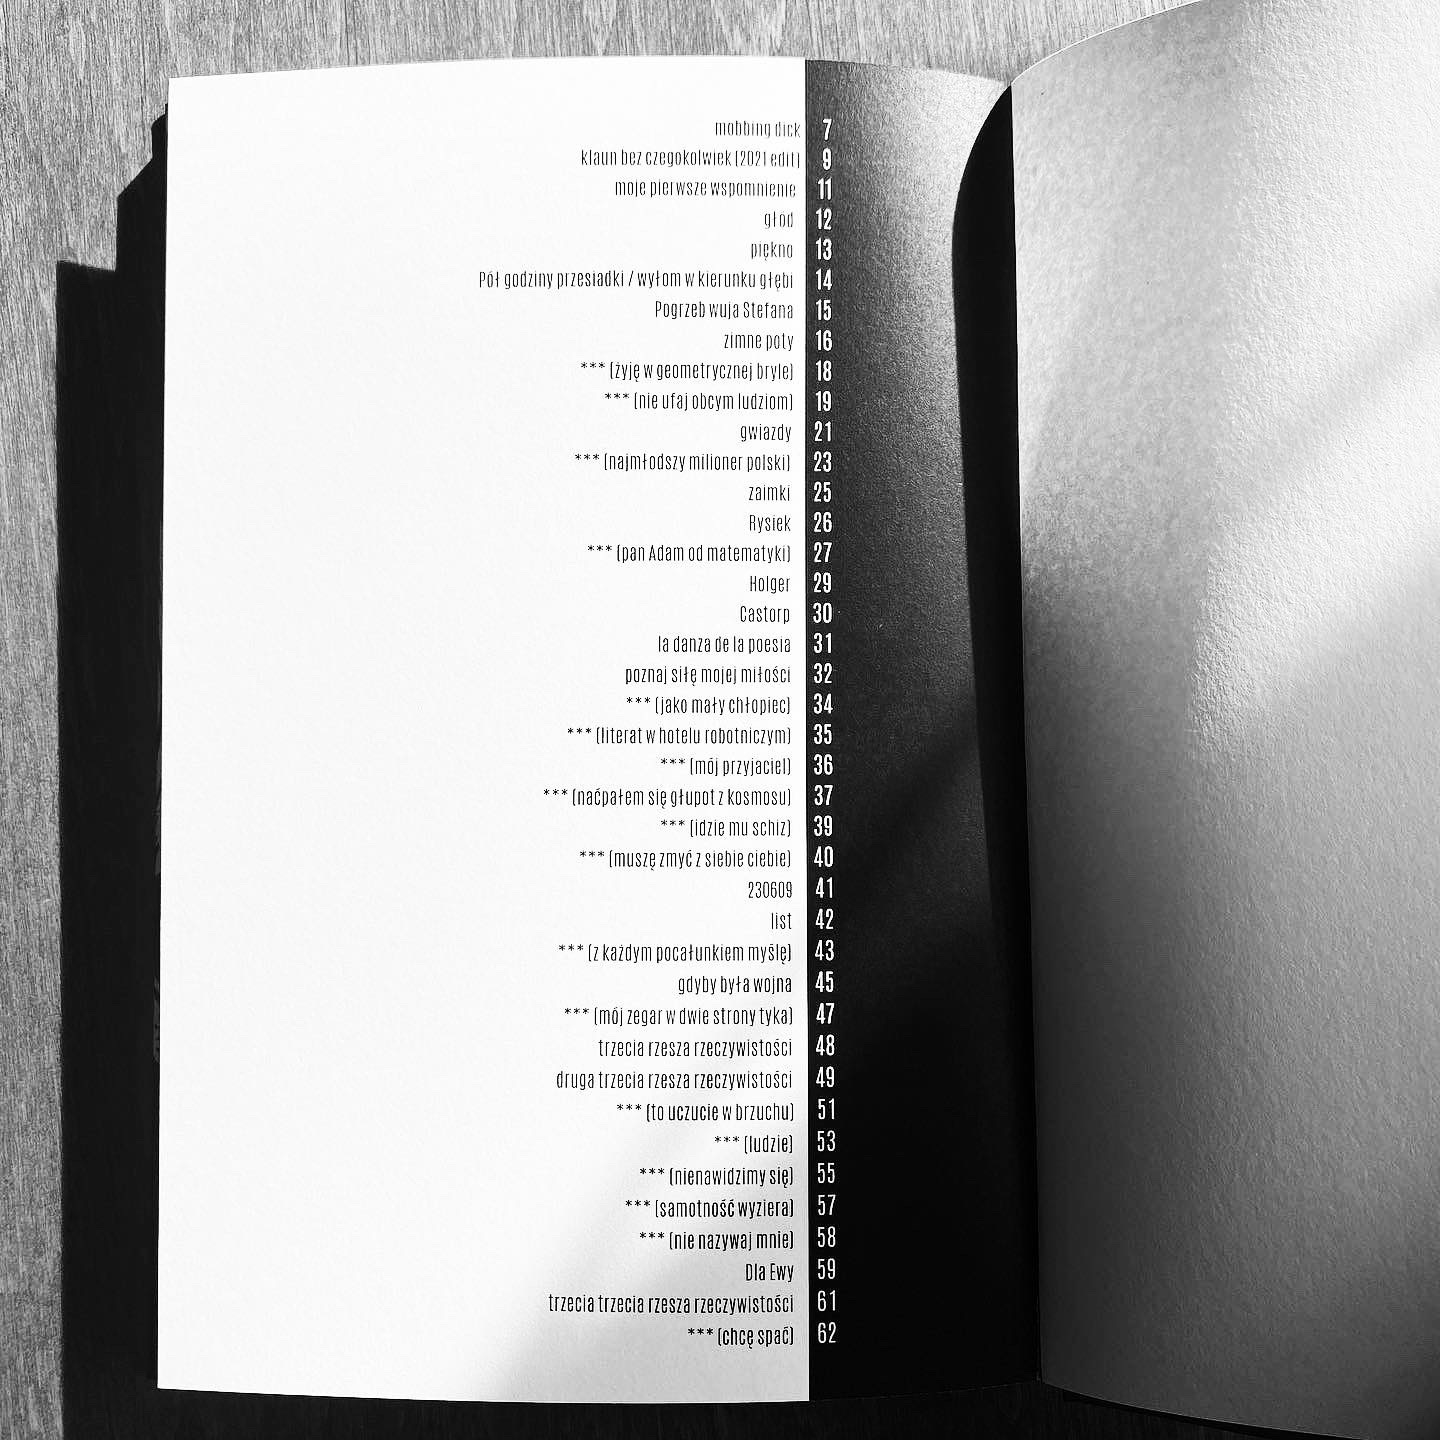 mobbing dick 7
klaun bez czegokolwiek (2021 edit) 9
moje pierwsze wspomnienie 11
głód 12
piękno 13
Pół godziny przesiadki / wyłom w kierunku głębi 14
Pogrzeb wuja Stefana 15
zimne poty 16
*** (żyję w geometrycznej bryle) 18
*** (nie ufaj obcym ludziom) 19
gwiazdy 21
*** (najmłodszy milioner polski) 23
zaimki 25
Rysiek 26
*** (pan Adam od matematyki) 27
Holger 29
Castorp 30
la danza de la poesia 31
poznaj siłę mojej miłości 32
*** (jako mały chłopiec) 34
*** (literat w hotelu robotniczym) 35
*** (mój przyjaciel) 36
*** (naćpałem się głupot z kosmosu) 37
*** (idzie mu schiz) 39
*** (muszę zmyć z siebie ciebie) 40
230609 41
list 42
*** (z każdym pocałunkiem myślę) 43
gdyby była wojna 45
*** (mój zegar w dwie strony tyka) 47
trzecia rzesza rzeczywistości 48
druga trzecia rzesza rzeczywistości 49
*** (to uczucie w brzuchu) 51
*** (ludzie) 53
*** (nienawidzimy się) 55
*** (samotność wyziera) 57
*** (nie nazywaj mnie) 58
Dla Ewy 59
trzecia trzecia rzesza rzeczywistości 61
*** (chcę spać) 62